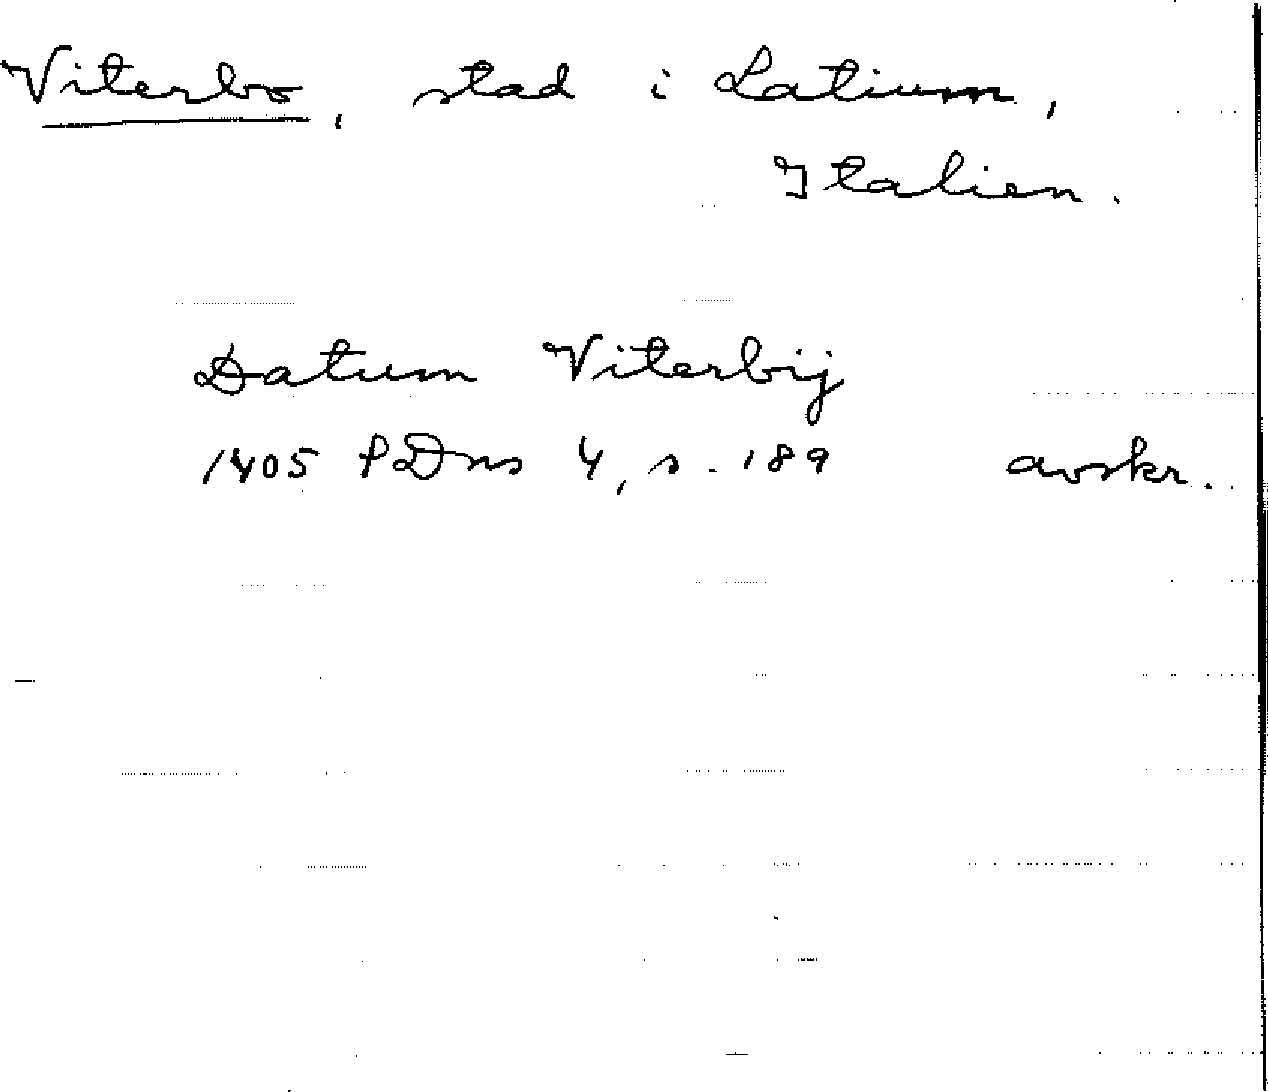 Viterbo, stad i Latium,
Italien.
Datum Viterbij
1405 SDns 4, s. 189 avskr.